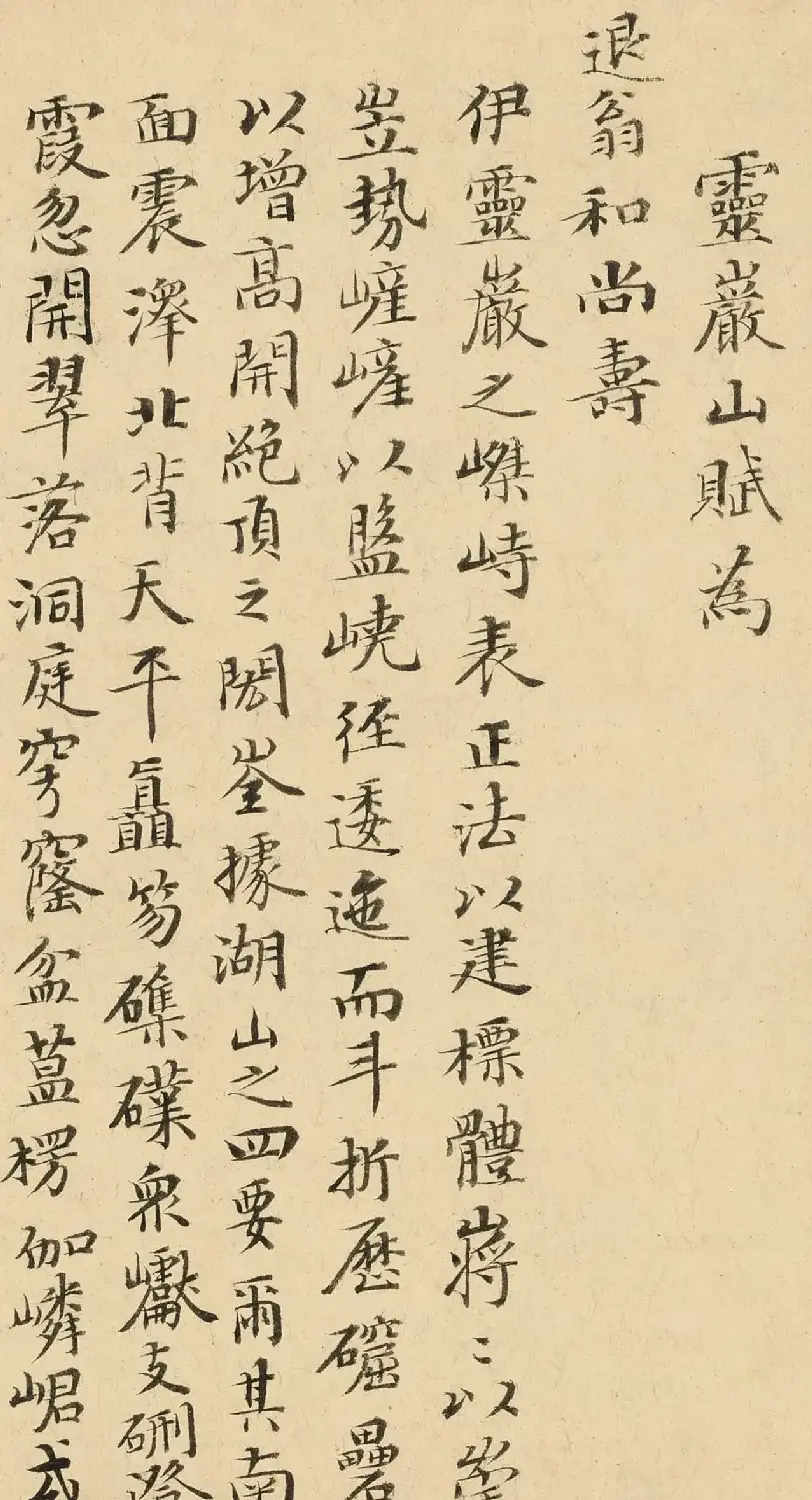 靈巖山賦為
退翁和尚壽
伊靈巖之嵥峙表正法以建標體嶈〻以
岦勢嵼嵼以盬嶢徑逶迤而斗折歷礭
以增高開絕頂之閎崟據湖山之四要爾其南
面震澤北背天平贔屓磼礏眾巘支硎
霞忽開翠落洞庭穹窿盆葢楞伽嶙峮或